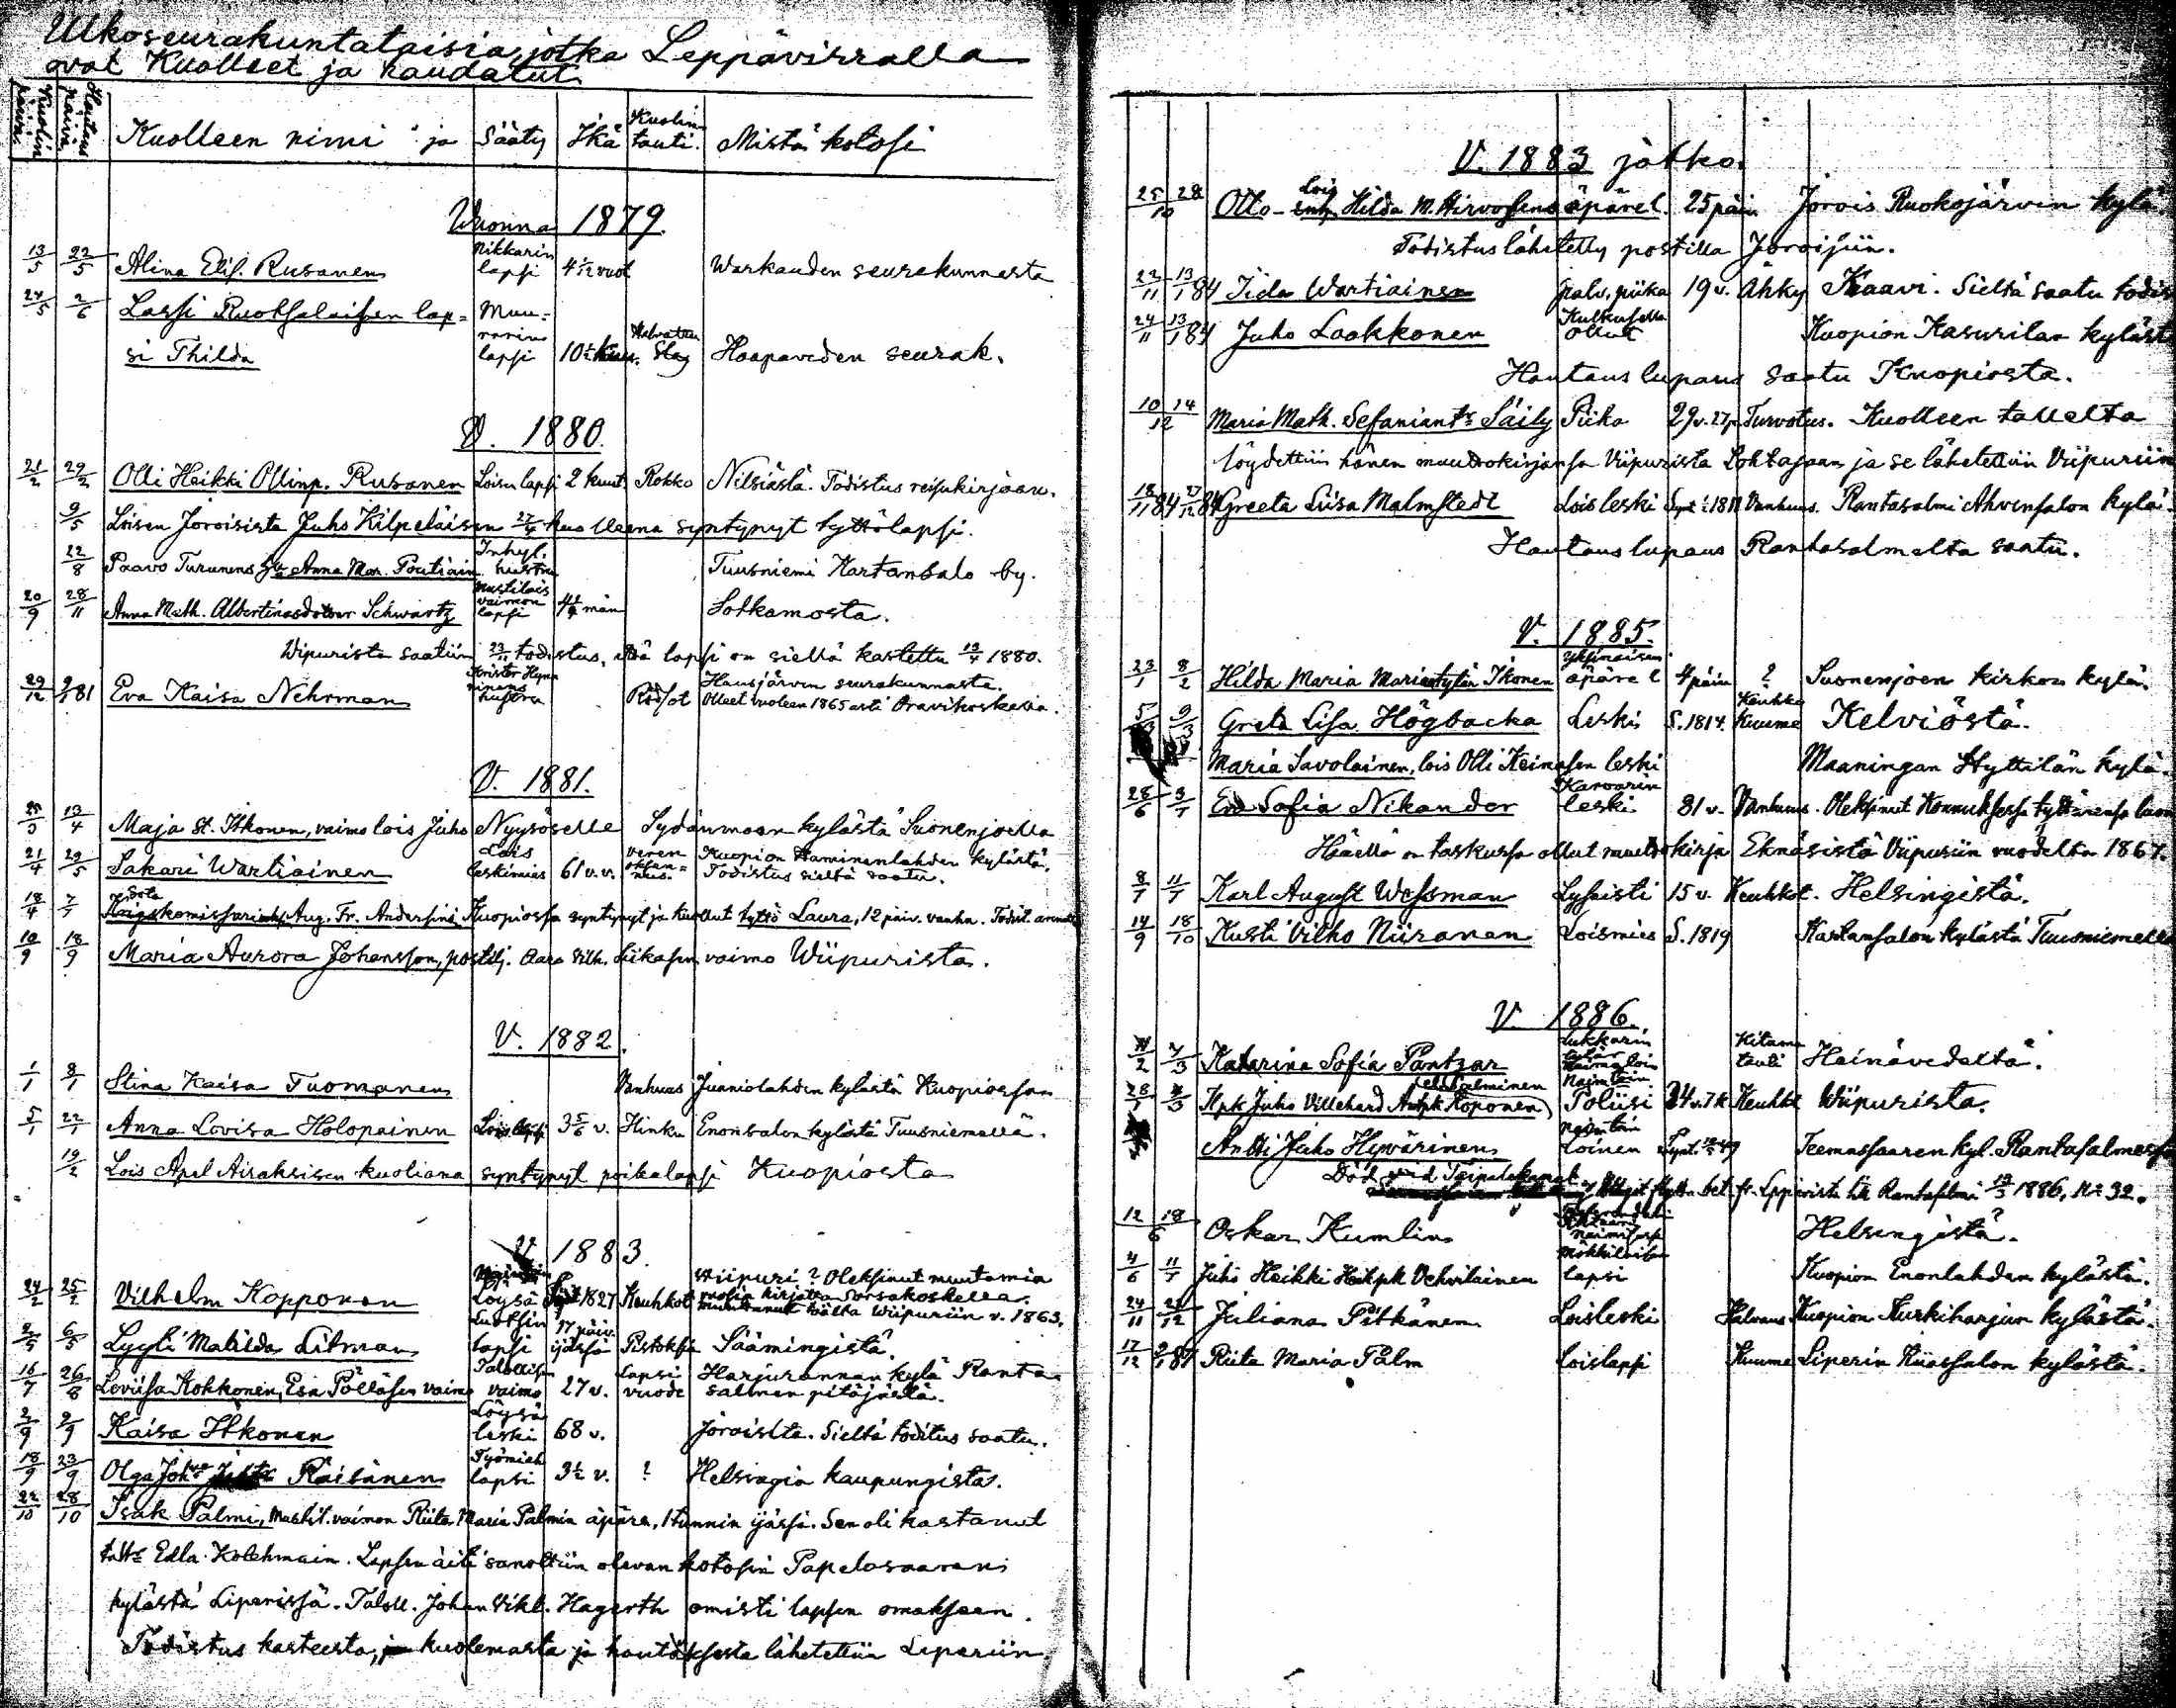 Ulkoseurakuntalaisia, jotka Leppävirralla
ovat Kuolleet ja haudatut
Kuolin päivä Hautaus päivä Kuolleen nimi ja Sääty Ikä Kuolin tauti. Mistä kotosi
Vuonna 1879.
13/5 22/5 Alina Elis. Rusanen Nikkarin lapsi 4 1/12 vuot Warkauden seurakunnasta
24/5 2/6 Lassi Ruotsalaisen lap= Muu=
si Thilda rarin lapsi 10 1/2 kuu. Halvatun Slag Haapaveden seurak.
V. 1880.
21/2 29/2 Olli Heikki Ollinp. Rusanen Loisen lapsi 2 kuut Rokko Nilsiästä. Todistus reisukirjaan.
9/5 Loisen Joroisista Juho Kilpeläisen 27/4 kuolleena syntynyt tyttölapsi.
22/8 Paavo Turunens hu Anna Mar. Poutiain Inhyl. hustru Tuusniemi Kartansalo by.
20/9 28/11 Anna Math. Albertinasdotter Schwartz Mustilais vaimon lapsi 4 1/2 mån Sotkamosta.
Wipurista saatiin 23/11 todistus, että lapsi on siellä kastettu 13/4 1880.
29/12 9/1 81 Eva Kaisa Nehrman Krister Hynninens hustru Rödsot Hausjärven seurakunnasta. Olleet vuoteen 1865 asti Oravikoskella.
V. 1881.
25/3 13/4 Maja St. Itkonen, vaimo lois Juho Nyysöselle Sydänmaan kylästä Suonenjoella
21/4 29/5 Sakari Wartiainen Lois leskimies 61 v.v. veren oksen= nus. Kuopion Haminanlahden kylästä. Todistus sieltä saatu.
18/4 7/7 Sota komissarius Aug. Fr. Andersins Kuopiossa syntynyt ja kuollut tyttö Laura, 12 päiv. vanha.
10/9 18/9 Maria Aurora Johansson, postilj. Aaro Vilh. Siikasen vaimo Wiipurista.
V. 1882.
1/1 8/1 Stina Kaisa Tuomanen Vanhuus Juaniolahden kylästä Kuopiossa
5/1 22/1 Anna Lovisa Holopainen Lois lapsi 3 5/6 v. Hinku Enonsalon kylästä Tuusniemellä.
19/2 Lois Apel Airaksisen kuoliana syntynyt poikalapsi Kuopiosta
V. 1883.
24/2 25/2 Vilhelm Kopponen Löysä Synt 1827 Keuhkot Wiipuri? Oleksinut muutamia vuosia kirjatta Sorsakoskella. Muuttanut täältä Wiipuriin v. 1863.
2/5 6/5 Lyyli Matilda Litman Luotsin lapsi 17 päiv. ijässä Pistoksi Säämingistä.
16/7 26/8 Loviisa Kohkonen, Esa Pöllösen vaimo Talollis vaimo 27 v. Lapsi vuode Harjurannan kylä Ranta= salmen pitäjästä.
2/9 9/9 Kaisa Itkonen Löysä leski 68 v. Joroisista. Sieltä toditus saatu.
18/9 23/9 Olga Räisänen Työmieh lapsi 3 1/2 v. ? Helsingin kaupungista.
22/10 28/10 Isak Palmi, Mustil. vaimon Riita Maria Palmin äpärä, 1 tunnin ijässä. Sen oli kastanut
Edla Kolehmain. Lapsen äiti sanottiin olevan kotosin Papelosaaren
kylästä Liperissä. Taloll. Johan Vikt. Hagerth omisti lapsen omakseen.
Todistus kasteesta, kuolemasta ja hautauksesta lähetettiin Liperiin.
V. 1883 jatko.
25/10 28 Otto - Lois Hilda M. Hirvosens äpärel. 25 päiv. Jorois Ruokojärven kylä.
Todistus lähetetty postilla Joroisiin.
22/11 13/1 84 Iida Wartiainen palv. piika 19 v. Ähky Kaavi. Sieltä saatu todis
24/11 13/1 84 Juho Laakkonen Kulkusella ollut Kuopion Kasurilan kyläst
Hautauslupaus saatu Kuopiosta.
10/12 14 Maria Math. Sefaniantr Säily Piika 29 v. 27 p. Turvotus. Kuolleen tallelta
löydettiin hänen muuttokirjansa Viipurista Lohtajaan ja se lähetettiin Viipuriin
18/11 84 27/12 84 Greeta Liisa Malmstedt Lois leski Synt 1811 Vanhuus. Rantasalmi Ahvensalon kylä.
Hautauslupaus Rantasalmelta saatu.
V. 1885.
23/1 8/2 Hilda Maria Mariantytän Ikonen yksinäisen äpärel 4 päiv ? Suonenjoen kirkon kylä.
5/3 9/3 Greta Lisa Högbacka Leski S. 1814. Keuhko Kuume Kelviöstä.
Maria Savolainen, lois Olli Keinasen leski Maaningan Hyttilän kylä.
28/6 3/7 Eva Sofia Nikander Karvarin leski 81 v. Vanhuus. Oleksinut Konnuksessa tyttärensä luona
Häellä on taskussa ollut muuttokirja Ekenäsistä Viipuriin vuodelta 1867.
8/7 11/7 Karl August Wessman Lyseisti 15 v. Keuhkot. Helsingistä.
14/9 18/10 Kusti Vilho Niiranen Loismies S. 1819 Kartansalon kylästä Tuusniemellä
V. 1886.
2 7/3 Katarina Sofia Pantzar Lukkarin Kitama tauti Heinävedeltä.
28 3 Itpk Juho Villehard Koponen Naimtoin Toliisi 24 v. 7 k Keuhko Wiipurista.
Antti Juho Hyvärinen naimtoin Loinen Synt. 49 Teemassaaren kyl. Rantasalmessa
Död vid Taipalekanal. flyttn. bet. fr. Leppävirta till Rantasalmi 19/3 1886, No 32.
12/6 18 Oskar Kumlin Helsingistä.
4/6 11/7 Juho Heikki Heikpk Vehviläinen Mökkiläisen lapsi Kuopion Enonlahden kylästä.
24/11 12 Juliana Pitkänen Loisleski Halvaus Kuopion Kurkiharjun kylästä.
17/12 9/1 87 Riita Maria Palm Loislapsi Kuume Liperin Kiiassalon kylästä.